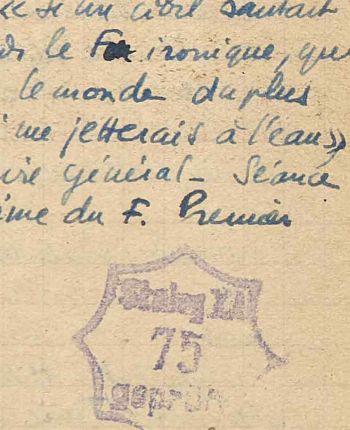 « Si un civil sautait
le F ironique, que
le monde du plus
me jetterais à l'eau »
général - Séance
du F. Premier
Stalag
75
geprüft